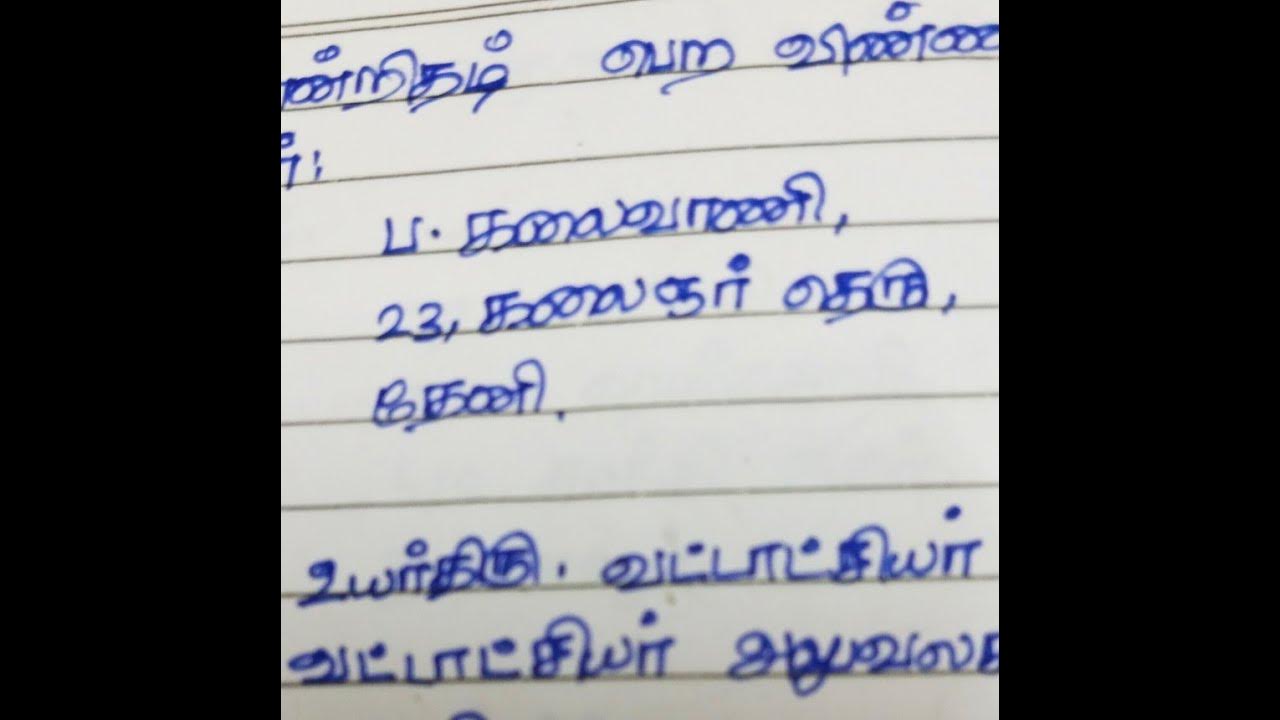 ண்றிதழ் பெற விண்ண
ர்:
ப. கலைவாணி,
23, கலைஞர் தெரு,
தேனி.
உயர்திரு. வட்டாட்சியர்
வட்டாட்சியர் அலுவலக